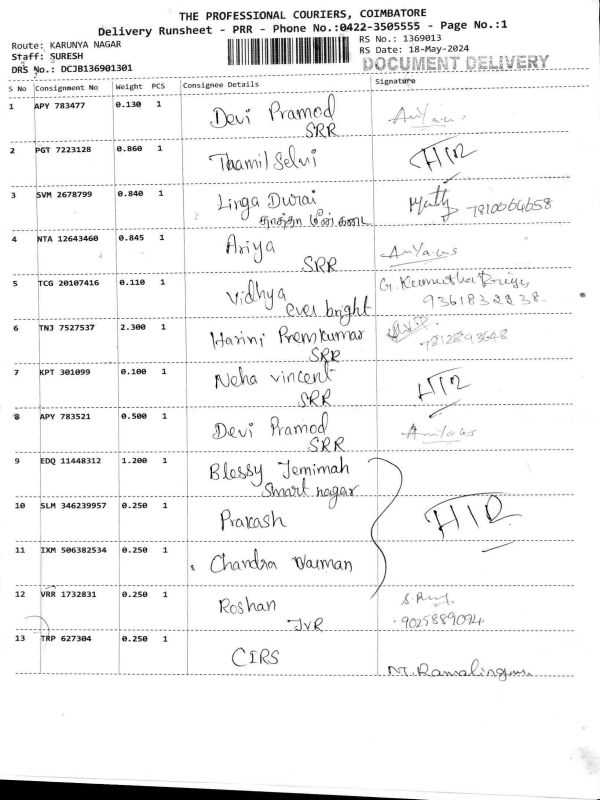 THE PROFESSIONAL COURIERS, COIMBATORE
Delivery Runsheet - PRR - Phone No.:0422-3505555 - Page No.:1
Route: KARUNYA NAGAR
RS No.: 1369013
Staff: SURESH
RS Date: 18-May-2024
DRS No.: DCJB136901301
DOCUMENT DELIVERY
S No Consignment No Weight PCS Consignee Details Signature
1 APY 783477 0.130 1 Devi Pramod
SRR
2 PGT 7223128 0.860 1 Thamil Selvi HIR
3 SVM 2678799 0.840 1 Linga Durai 7810064658
தாத்தா மீன் கடை
4 NTA 12643460 0.845 1 Ariya
SRR
5 TCG 20107416 0.110 1 Vidhya G. Kumutha
ever bright 9361832238.
6 TNJ 7527537 2.300 1 Harini Premkumar 7812893648
SRR
7 KPT 301099 0.100 1 Neha vincent HIR
SRR
8 APY 783521 0.500 1 Devi Pramod
SRR
9 EDQ 11448312 1.200 1 Blessy Jemimah
Smart nagar
10 SLM 346239957 0.250 1 Prakash HIR
11 IXM 506382534 0.250 1 Chandra
12 VRR 1732831 0.250 1 Roshan
JVR 9025889094
13 TRP 627304 0.250 1 CIRS
M. Ramalingam